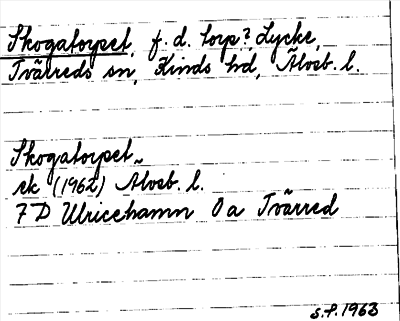 Skogatorpet, f. d. torp? Lycke,
Tvärreds sn, Kinds hd, Älvsb. l.
Skogatorpet
ek (1962) Älvsb. l.
7D Ulricehamn 0a Tvärred
S.P. 1963